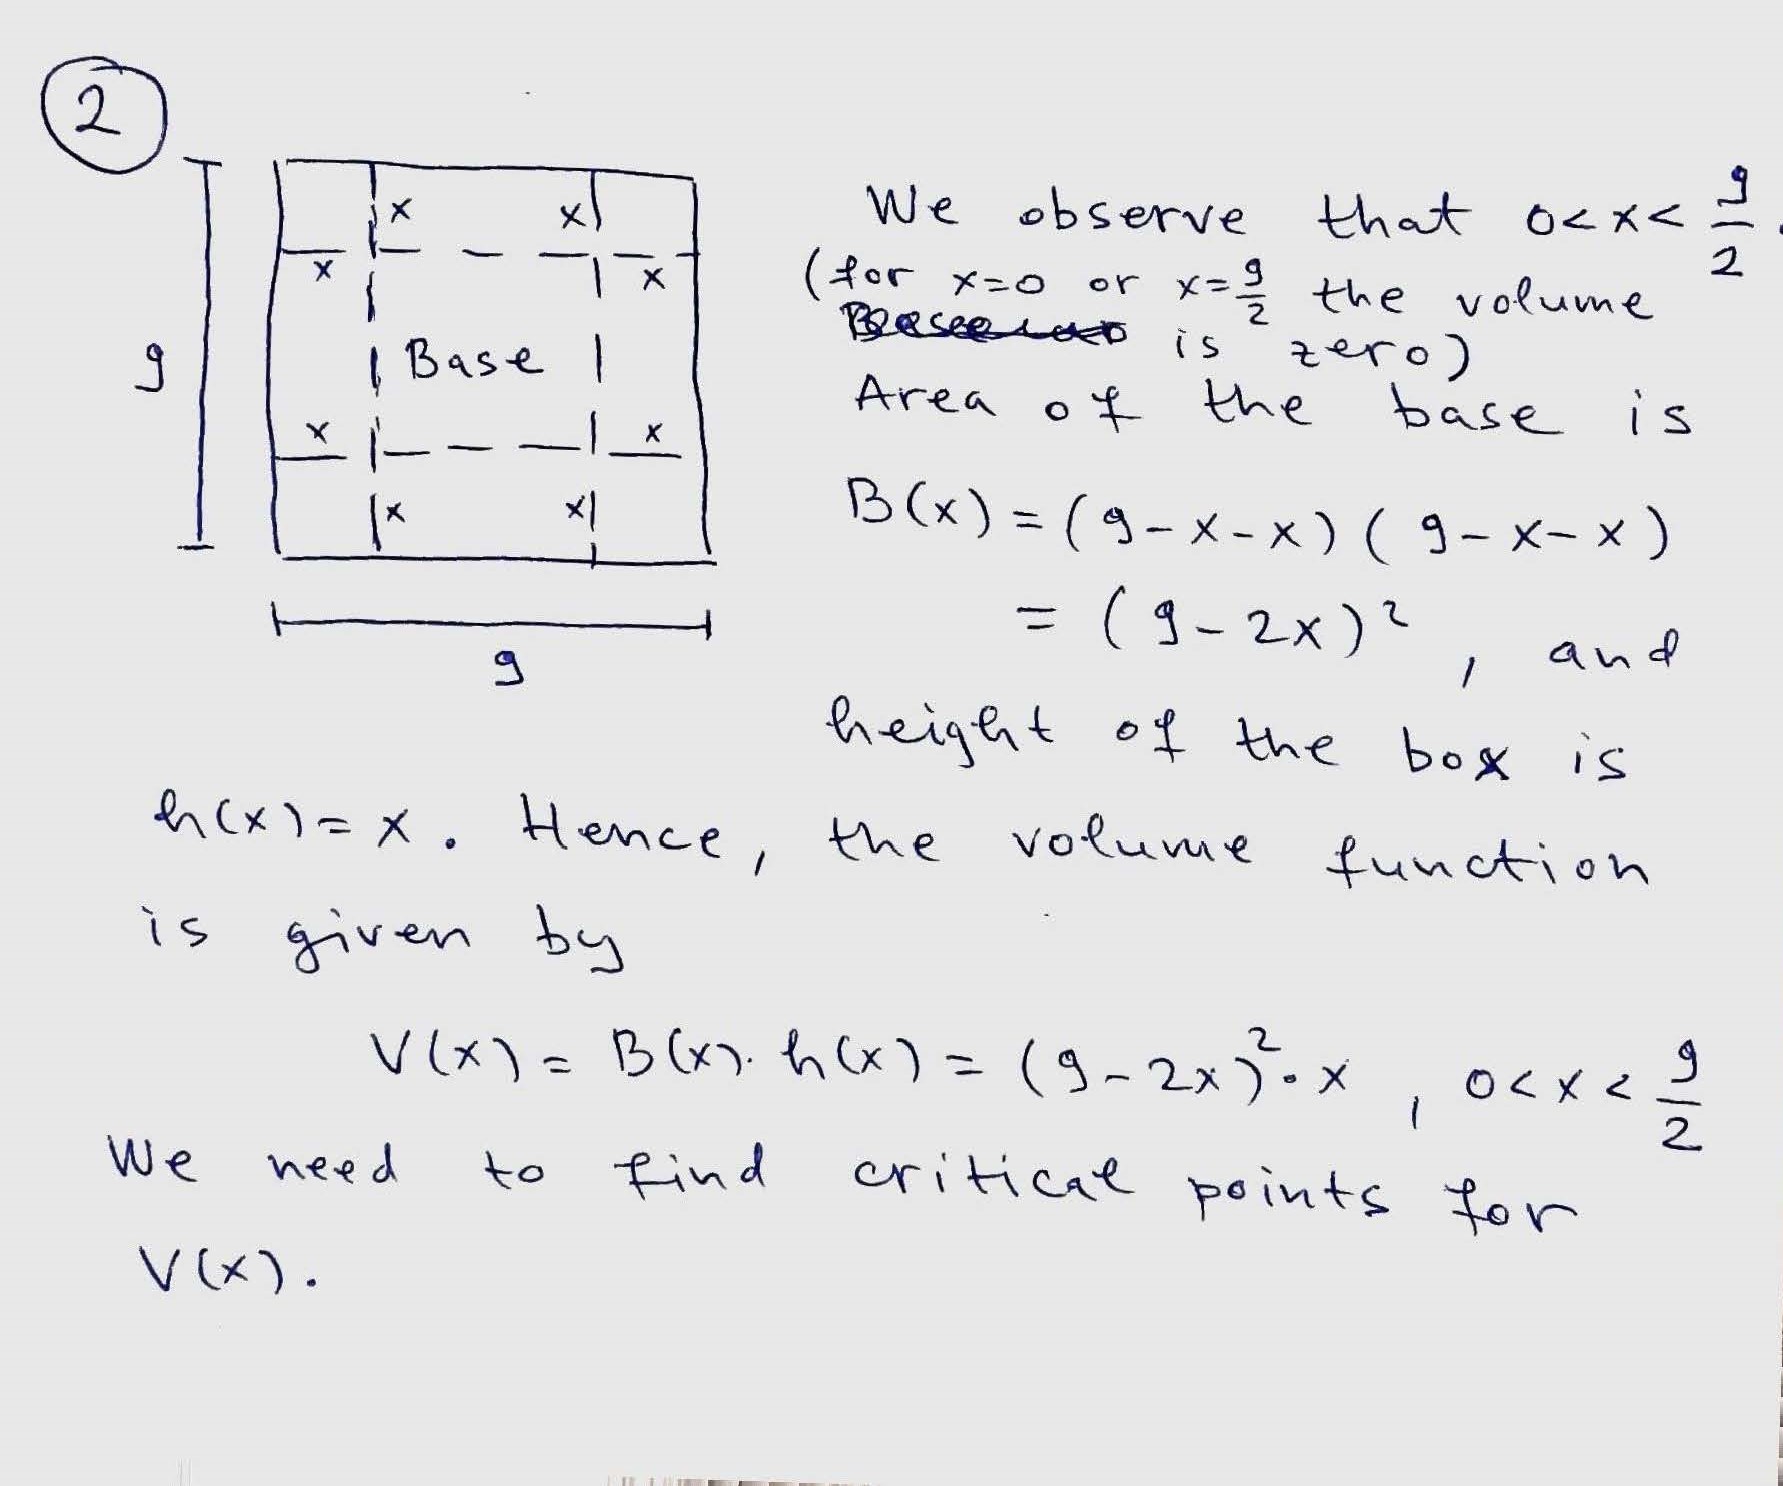 2
x x
x x
9 Base
x x
x x
9
We observe that 0<x<9/2.
(for x=0 or x=9/2 the volume
is zero)
Area of the base is
B(x)=(9-x-x)(9-x-x)
=(9-2x)², and
height of the box is
h(x)=x. Hence, the volume function
is given by
V(x)=B(x).h(x)=(9-2x)²·x, 0<x<9/2
We need to find critical points for
V(x).